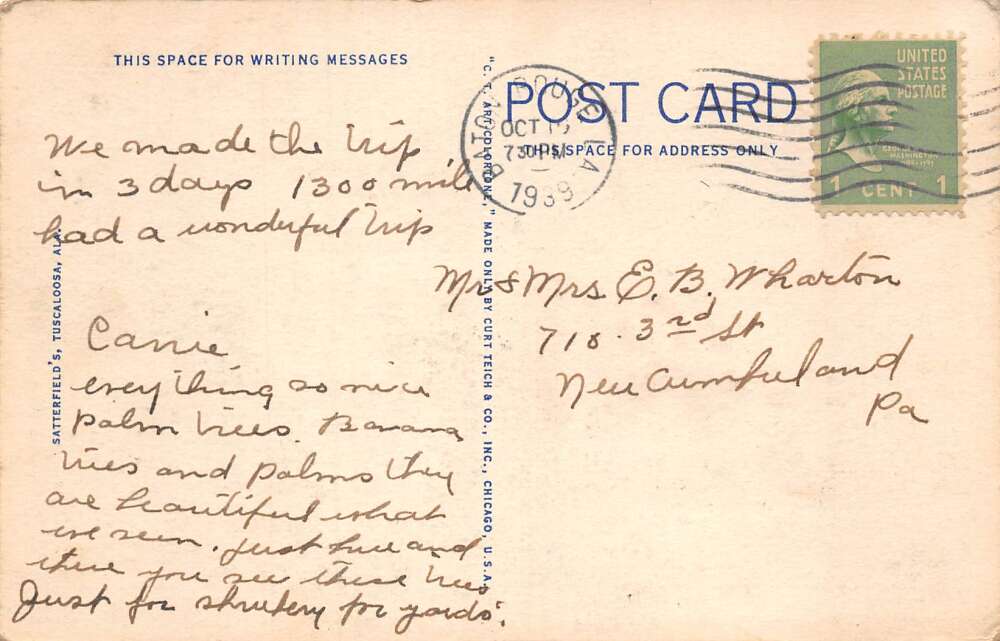 THIS SPACE FOR WRITING MESSAGES
We made the trip
in 3 days 1300 mile
had a wonderful trip
Carrie
everything so nice
palm trees. Banana
trees and palms they
are beautiful what
we seen. just here and
there you see these trees
Just for shrubery for yards.
SATTERFIELD'S, TUSCALOOSA, ALA.
"C. T. ART-COLORTONE," MADE ONLY BY CURT TEICH & CO., INC., CHICAGO, U.S.A.
POST CARD
THIS SPACE FOR ADDRESS ONLY
BATON ROUGE LA
OCT
730 PM
1939
UNITED
STATES
POSTAGE
GEORGE
WASHINGTON
1 CENT 1
Mr & Mrs. E. B. Wharton
718. 3rd St
New Cumberland
Pa